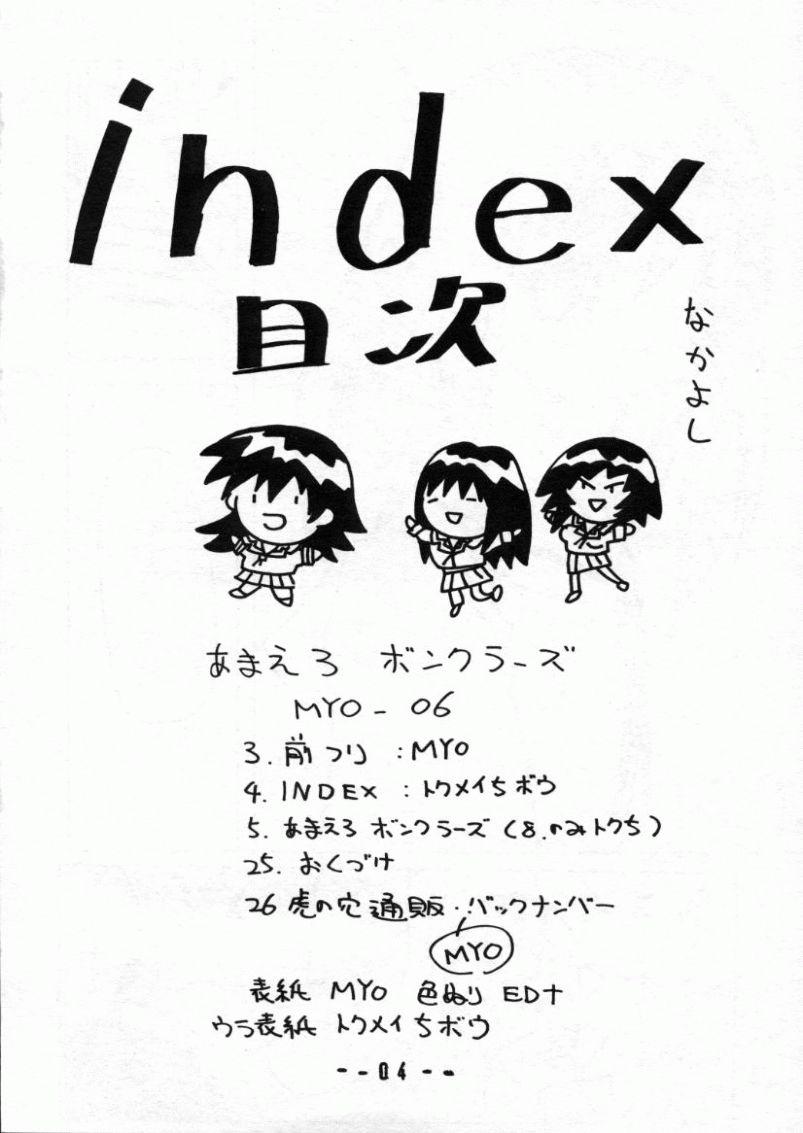 index
目次
なかよし
あまえろ ボンクラーズ
MYO - 06
3. 前フリ : MYO
4. INDEX : トクメイちボウ
5. あまえろ ボンクラーズ (8.のみトクち)
25. おくづけ
26 虎の穴 通販・バックナンバー
MYO
表紙 MYO 色ぬり ED+
ウラ表紙 トクメイちボウ
--04--